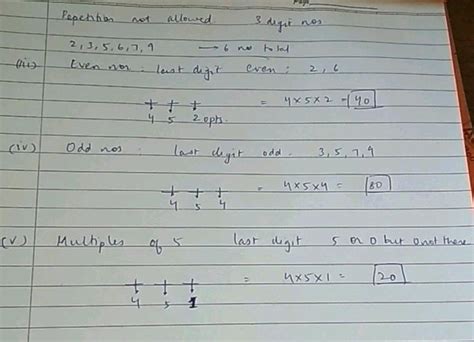 Repetition not allowed 3 digit nos
2, 3, 5, 6, 7, 9 → 6 no total
(iii) Even nos : last digit even : 2, 6
4 5 2 opts. = 4x5x2 = 40
(iv) Odd nos : last digit odd . 3, 5, 7, 9
4 5 4 = 4x5x4 = 80
(v) Multiples of 5 last digit 5 or 0 but 0 not there
4 5 1 = 4x5x1 = 20